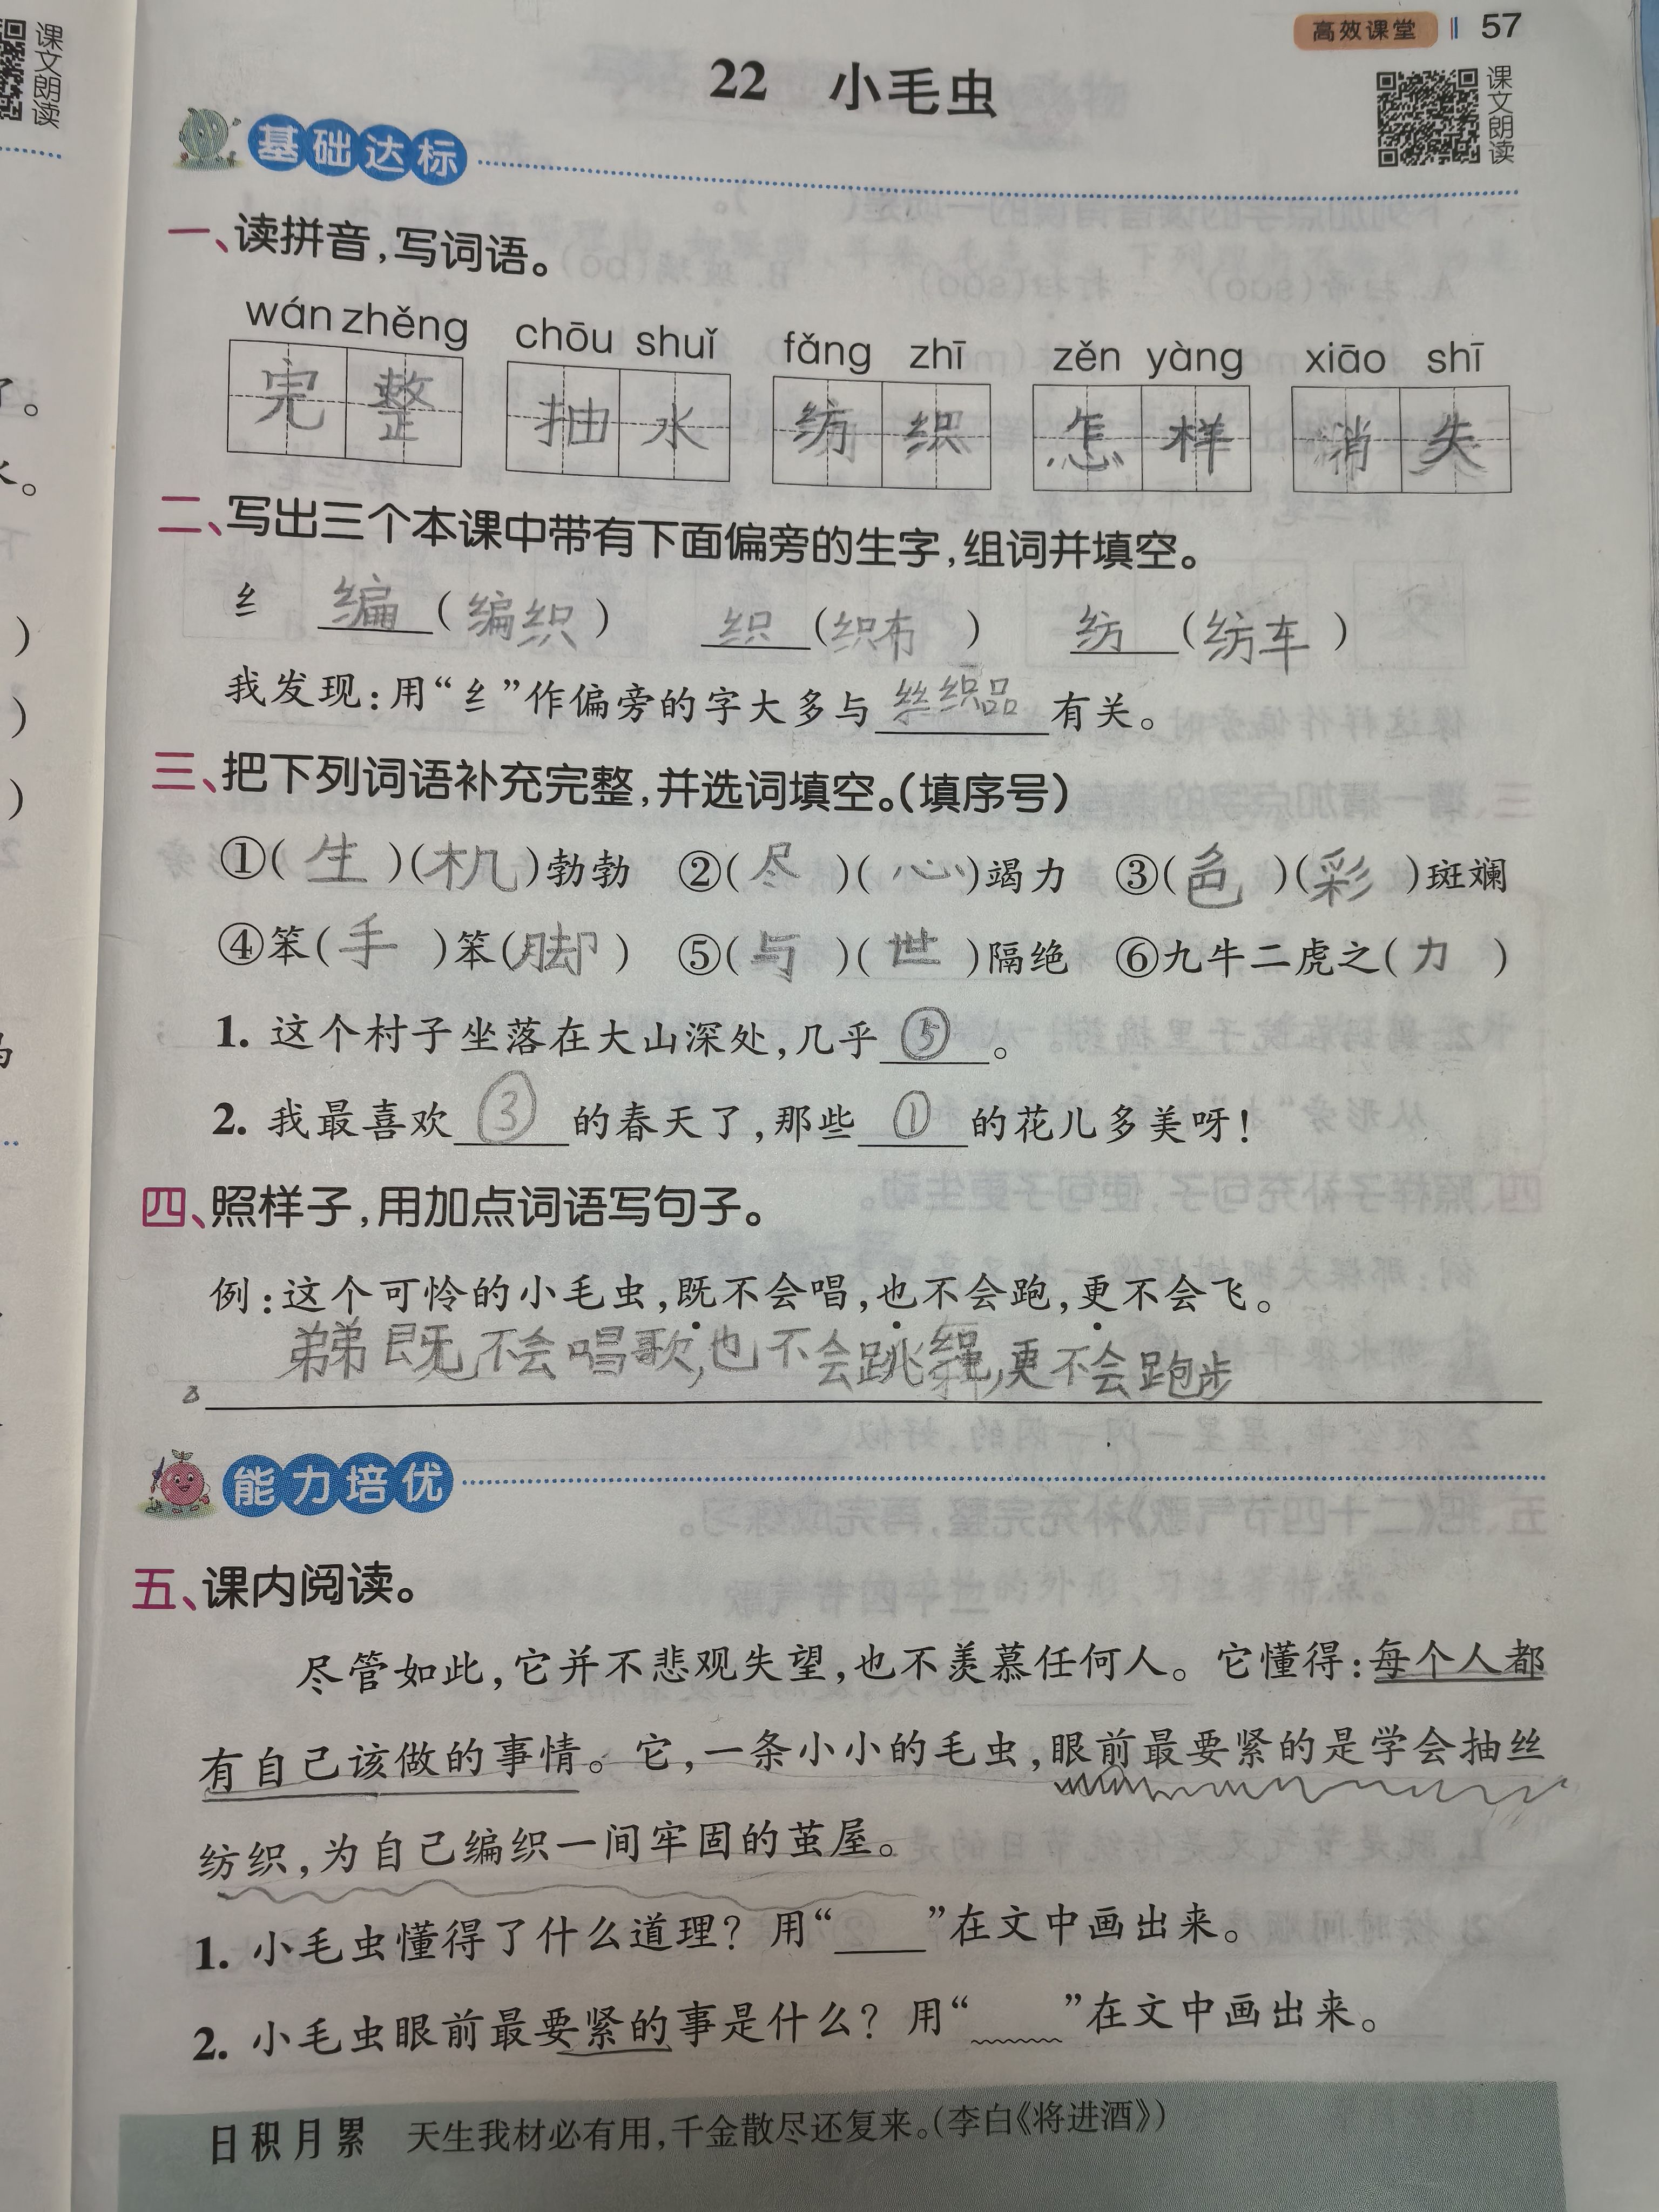 高效课堂 57
22 小毛虫
课文朗读
课文朗读
基础达标
一、读拼音,写词语。
wán zhěng chōu shuǐ fǎng zhī zěn yàng xiāo shī
完整 抽水 纺织 怎样 消失
二、写出三个本课中带有下面偏旁的生字,组词并填空。
纟 编(编织) 织(织布) 纺(纺车)
我发现:用“纟”作偏旁的字大多与丝织品有关。
三、把下列词语补充完整,并选词填空。(填序号)
①(生)(机)勃勃 ②(尽)(心)竭力 ③(色)(彩)斑斓
④笨(手)笨(脚) ⑤(与)(世)隔绝 ⑥九牛二虎之(力)
1. 这个村子坐落在大山深处,几乎⑤。
2. 我最喜欢③的春天了,那些①的花儿多美呀!
四、照样子,用加点词语写句子。
例:这个可怜的小毛虫,既不会唱,也不会跑,更不会飞。
弟弟既不会唱歌,也不会跳绳,更不会跑步
能力培优
五、课内阅读。
尽管如此,它并不悲观失望,也不羡慕任何人。它懂得:每个人都
有自己该做的事情。它,一条小小的毛虫,眼前最要紧的是学会抽丝
纺织,为自己编织一间牢固的茧屋。
1. 小毛虫懂得了什么道理?用“____”在文中画出来。
2. 小毛虫眼前最要紧的事是什么?用“﹏﹏”在文中画出来。
日积月累 天生我材必有用,千金散尽还复来。(李白《将进酒》)